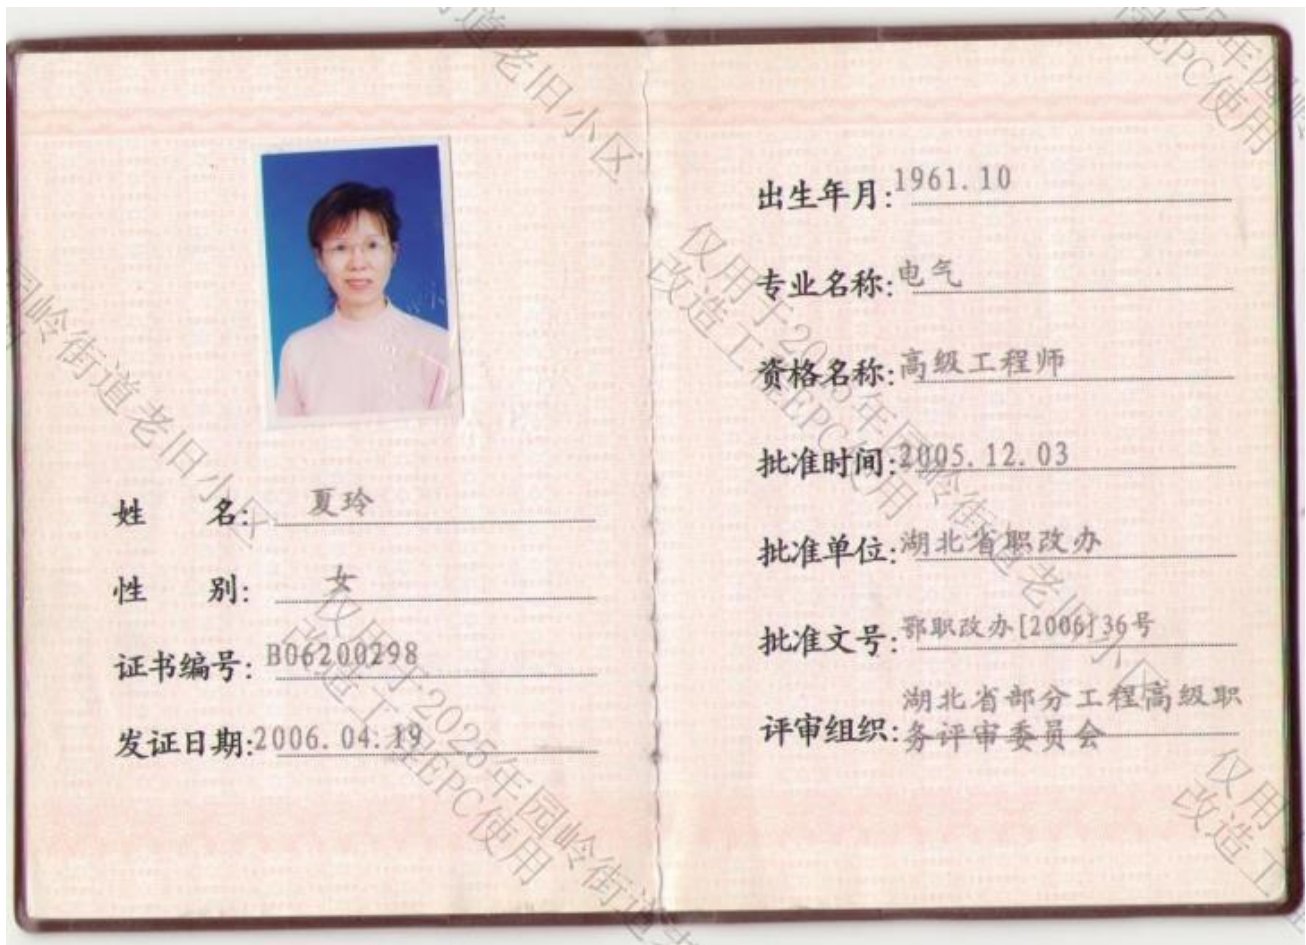 姓 名: 夏玲
性 别: 女
证书编号: B06200298
发证日期: 2006.04.19
出生年月: 1961.10
专业名称: 电气
资格名称: 高级工程师
批准时间: 2005.12.03
批准单位: 湖北省职改办
批准文号: 鄂职改办[2006]36号
评审组织: 湖北省部分工程高级职
务评审委员会
仅用于2025年园岭街道老旧小区
改造工程EPC使用